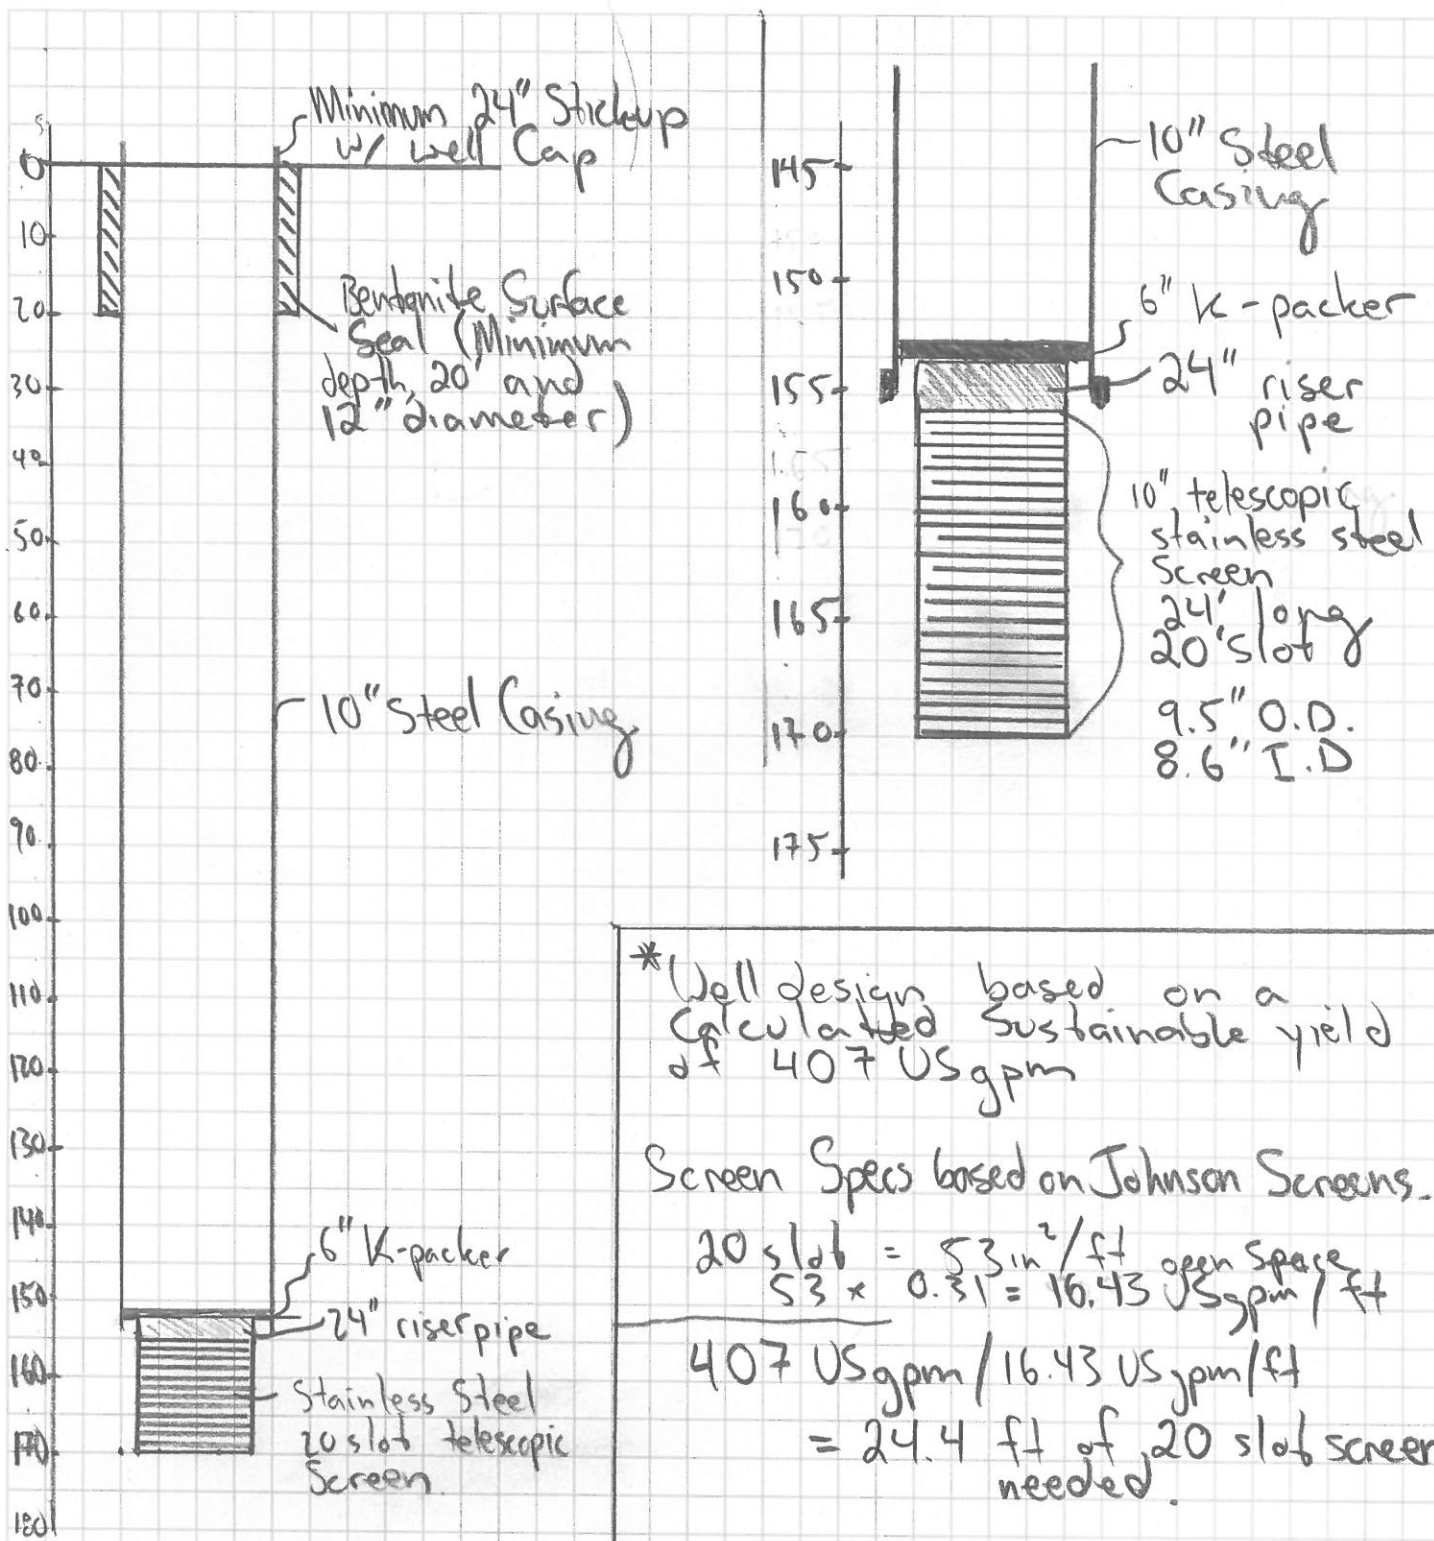 Minimum 24" Stickup
w/ well Cap
5
0
10
20
30
40
50
60
70
80
90
100
110
120
130
140
150
160
170
180
Bentonite Surface
Seal (Minimum
depth 20' and
12" diameter)
10" Steel Casing
6" K-packer
24" riser pipe
Stainless Steel
20 slot telescopic
Screen
145
150
155
160
165
170
175
10" Steel
Casing
6" K-packer
24" riser
pipe
10" telescopic
stainless steel
Screen
24' long
20 slot
9.5" O.D.
8.6" I.D
*Well design based on a
Calculatted Sustainable yield
of 407 USgpm
Screen Specs based on Johnson Screens.
20 slot = 53 in²/ft open Space
53 x 0.31 = 16.43 USgpm/ft
407 USgpm/16.43 USgpm/ft
= 24.4 ft of 20 slot screen
needed.